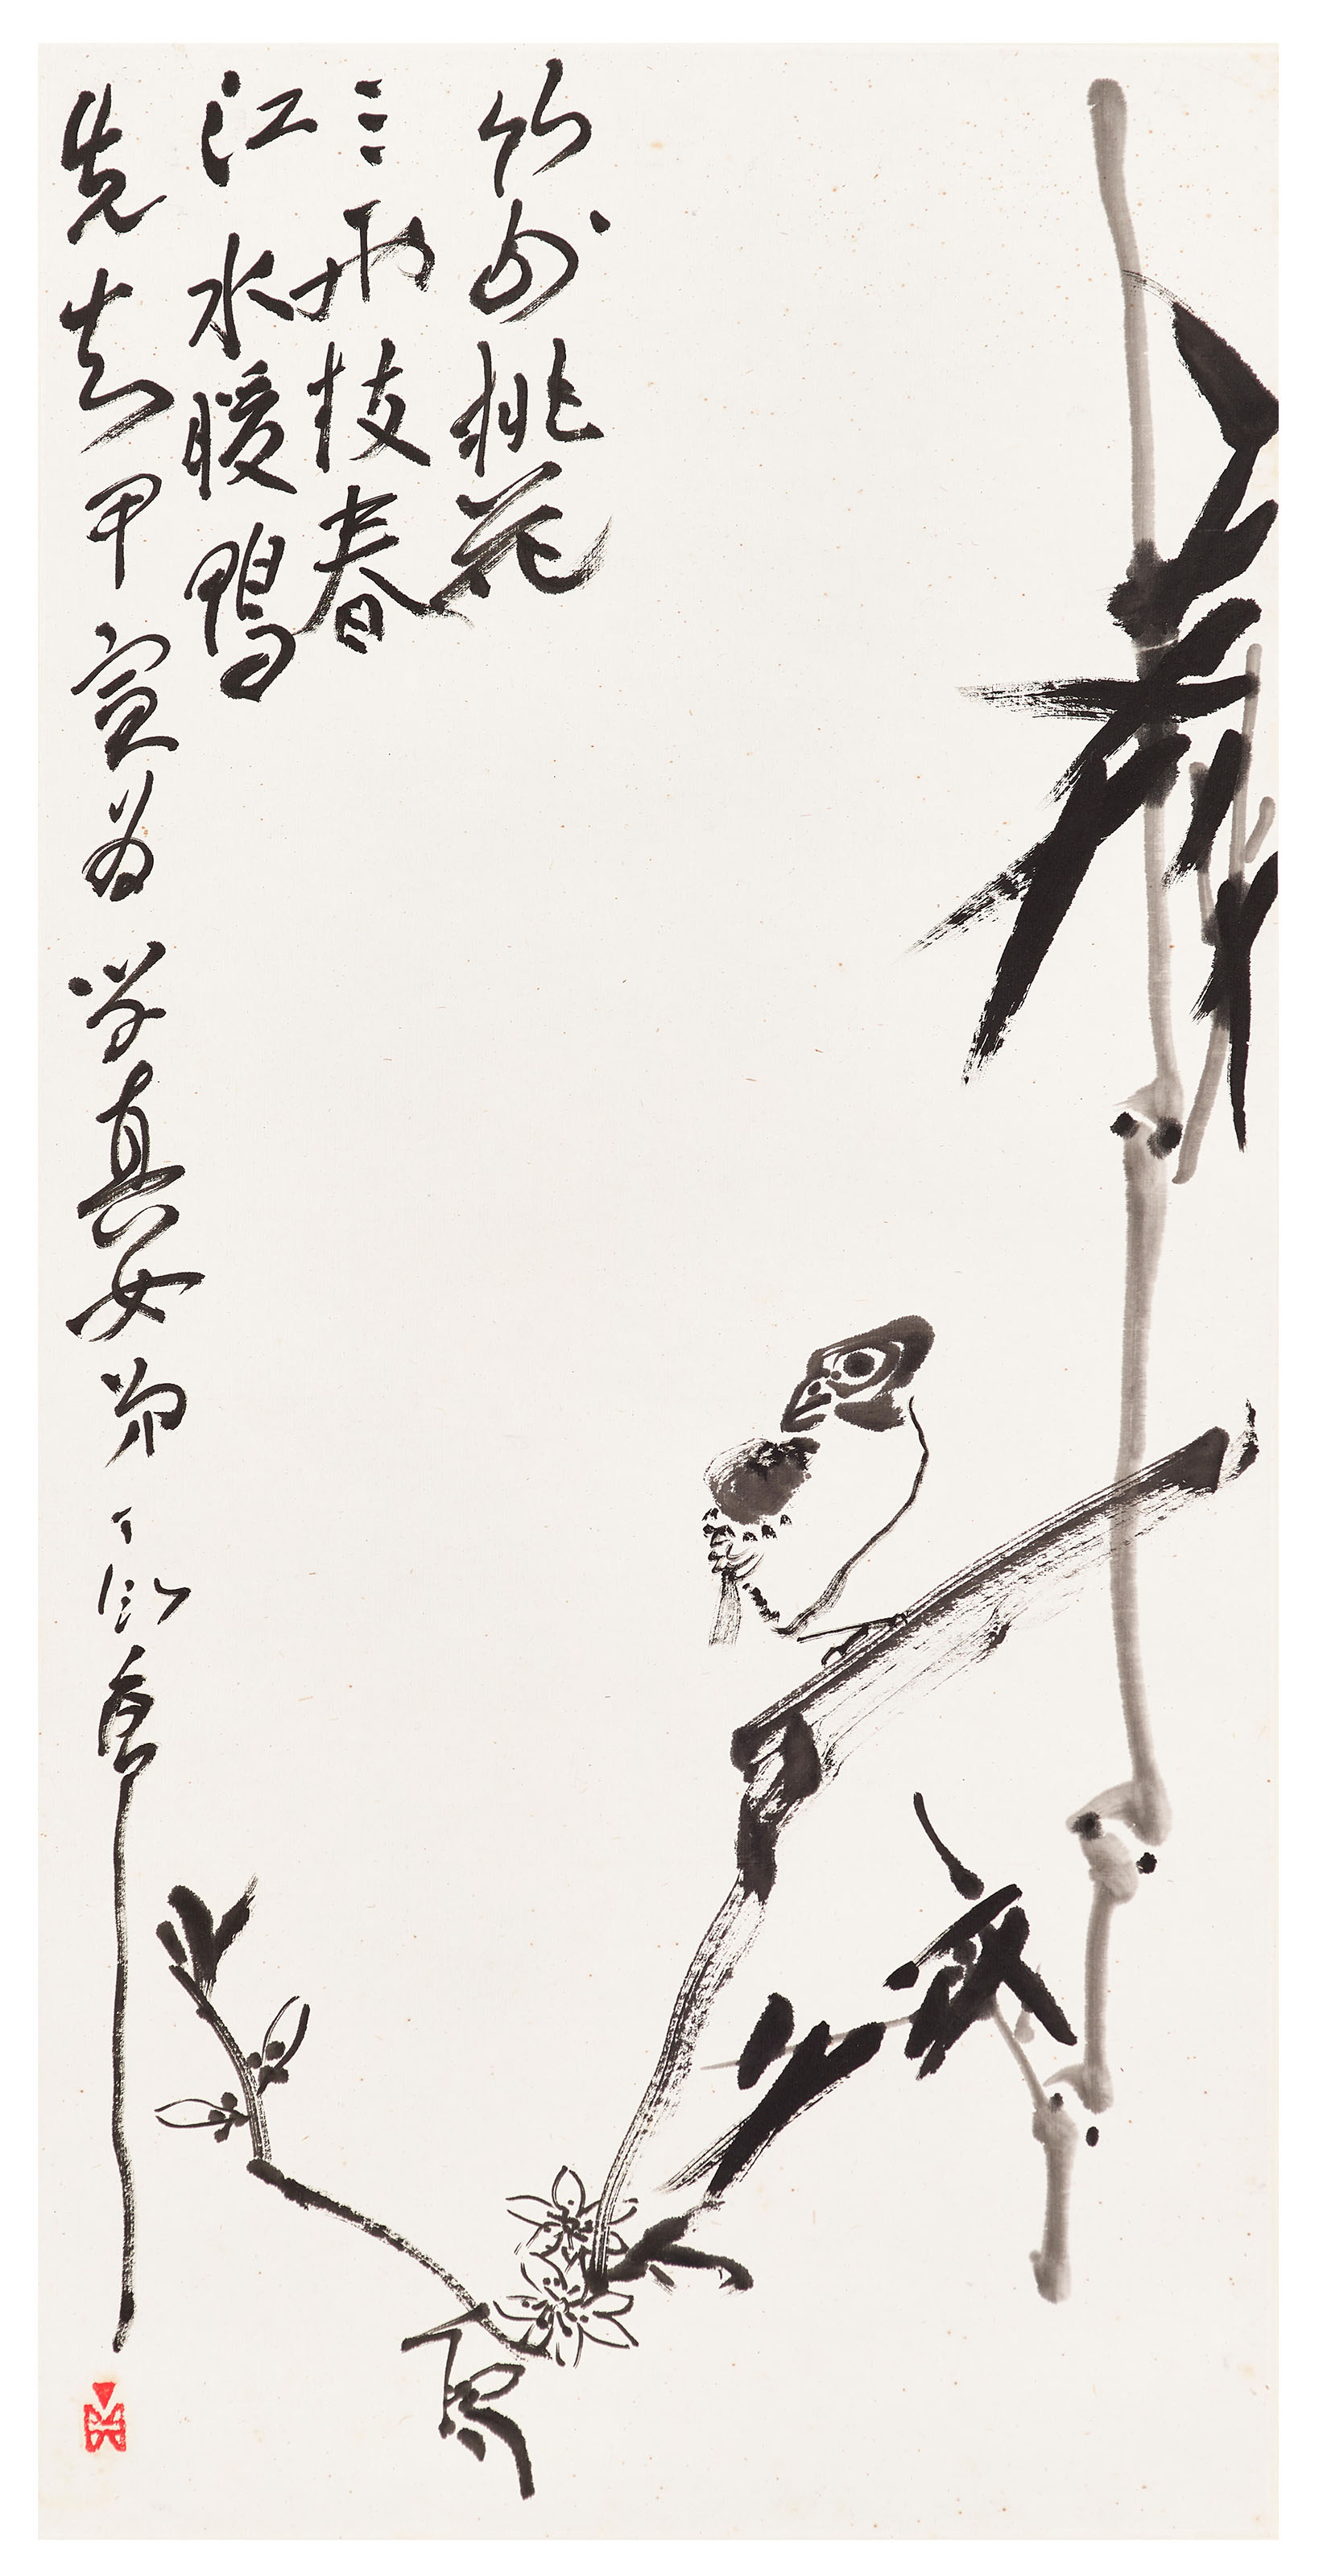 竹外桃花
三兩枝春
江水暖鴨
先知甲寅為学真女弟丁衍庸